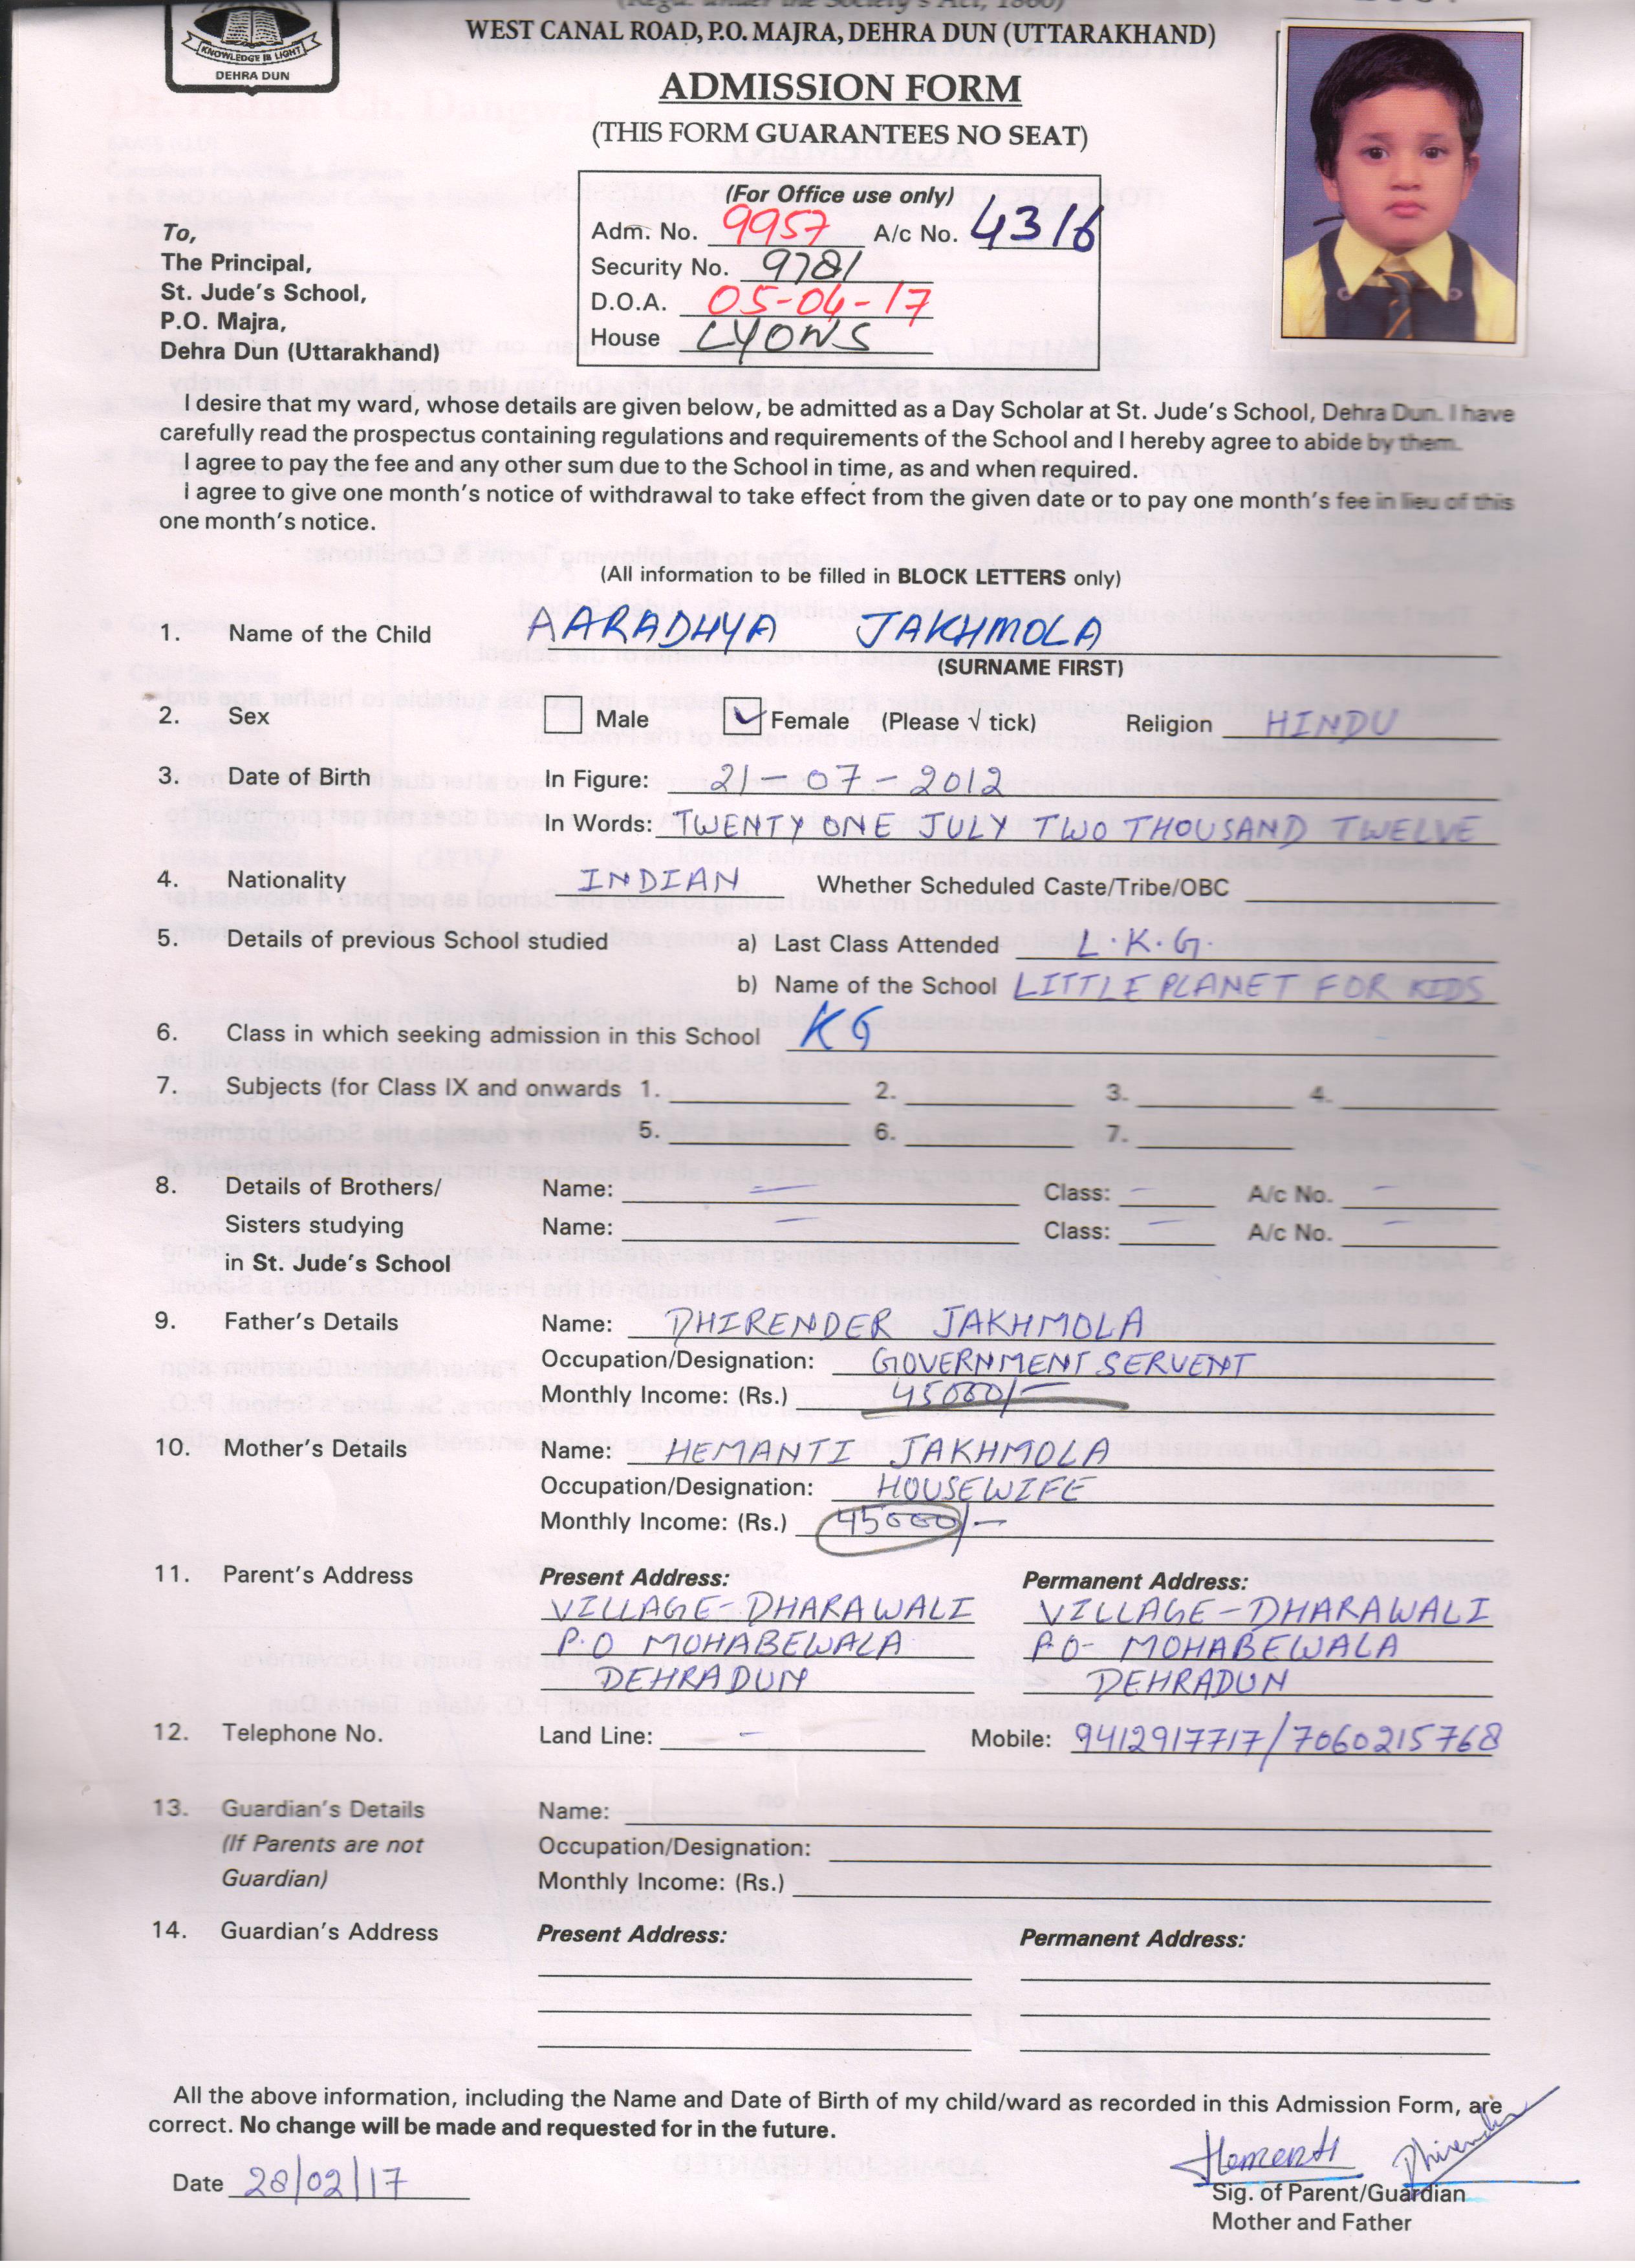 (Regd. under the Society's Act, 1860)
WEST CANAL ROAD, P.O. MAJRA, DEHRA DUN (UTTARAKHAND)
KNOWLEDGE IS LIGHT
DEHRA DUN
ADMISSION FORM
(THIS FORM GUARANTEES NO SEAT)
(For Office use only)
Adm. No. 9957 A/c No. 4316
Security No. 9781
D.O.A. 05-04-17
House LYONS
To,
The Principal,
St. Jude's School,
P.O. Majra,
Dehra Dun (Uttarakhand)
I desire that my ward, whose details are given below, be admitted as a Day Scholar at St. Jude's School, Dehra Dun. I have
carefully read the prospectus containing regulations and requirements of the School and I hereby agree to abide by them.
I agree to pay the fee and any other sum due to the School in time, as and when required.
I agree to give one month's notice of withdrawal to take effect from the given date or to pay one month's fee in lieu of this
one month's notice.
(All information to be filled in BLOCK LETTERS only)
1. Name of the Child AARADHYA JAKHMOLA
(SURNAME FIRST)
2. Sex Male ✓ Female (Please √ tick) Religion HINDU
3. Date of Birth In Figure: 21-07-2012
In Words: TWENTY ONE JULY TWO THOUSAND TWELVE
4. Nationality INDIAN Whether Scheduled Caste/Tribe/OBC
5. Details of previous School studied a) Last Class Attended L.K.G.
b) Name of the School LITTLE PLANET FOR KIDS
6. Class in which seeking admission in this School KG
7. Subjects (for Class IX and onwards 1. 2. 3. 4.
5. 6. 7.
8. Details of Brothers/ Name: — Class: — A/c No. —
Sisters studying Name: — Class: — A/c No. —
in St. Jude's School
9. Father's Details Name: DHIRENDER JAKHMOLA
Occupation/Designation: GOVERNMENT SERVENT
Monthly Income: (Rs.) 45000/-
10. Mother's Details Name: HEMANTI JAKHMOLA
Occupation/Designation: HOUSEWIFE
Monthly Income: (Rs.) 45000/-
11. Parent's Address Present Address: Permanent Address:
VILLAGE-DHARAWALI VILLAGE-DHARAWALI
P.O MOHABEWALA P.O- MOHABEWALA
DEHRADUN DEHRADUN
12. Telephone No. Land Line: - Mobile: 9412917717/7060215768
13. Guardian's Details Name:
(If Parents are not Occupation/Designation:
Guardian) Monthly Income: (Rs.)
14. Guardian's Address Present Address: Permanent Address:
All the above information, including the Name and Date of Birth of my child/ward as recorded in this Admission Form, are
correct. No change will be made and requested for in the future.
Hemanti Dhirender
Date 28/02/17
Sig. of Parent/Guardian
Mother and Father